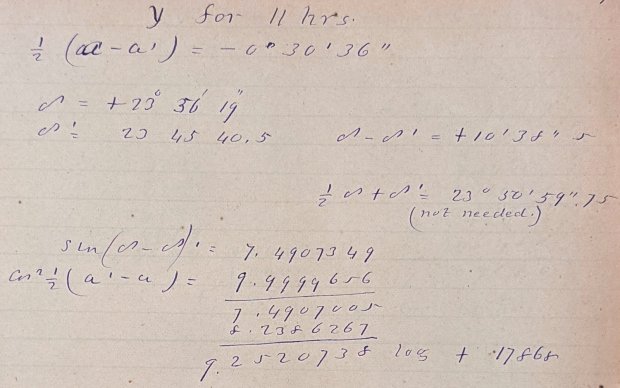 y for 11 hrs.
½ (α - α') = - 0° 30' 36"
δ = + 23° 56' 19"
δ' = 23 45 40.5 δ - δ' = + 10' 38" 5
½ δ + δ' = 23° 50' 59".75
(not needed.)
sin (δ - δ)' = 7.4907349
cos² ½ (α' - α) = 9.9999656
7.4907005
8.2386267
9.2520738 log + .17868